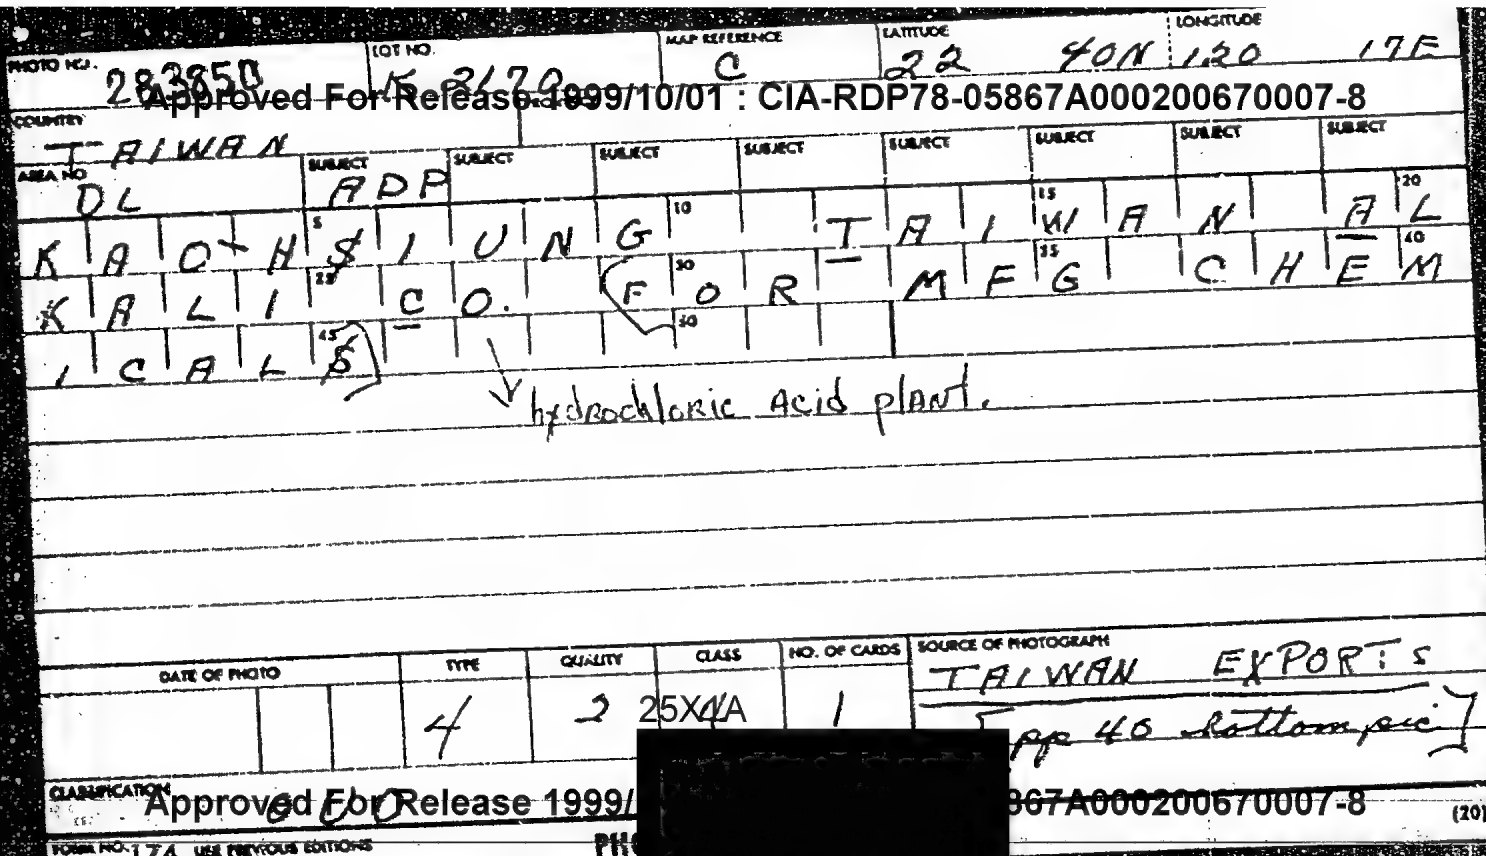 PHOTO NO. LOT NO. MAP REFERENCE LATITUDE LONGITUDE
283850 K 3170 C 22 40N 120 17E
Approved For Release 1999/10/01 : CIA-RDP78-05867A000200670007-8
COUNTRY
TAIWAN
AREA NO SUBJECT SUBJECT SUBJECT SUBJECT SUBJECT SUBJECT SUBJECT SUBJECT
DL ADP
5 10 15 20
KAO-HSIUNG TAIWAN AL
25 30 35 40
KALI CO. (FOR MFG CHEM
45 50
ICALS)
hydrochloric Acid plant.
DATE OF PHOTO TYPE QUALITY CLASS NO. OF CARDS SOURCE OF PHOTOGRAPH
4 2 25X1A 1 TAIWAN EXPORTS
[pp 40 bottom pic]
CLASSIFICATION
Approved For Release 1999/ 867A000200670007-8
(20)
FORM NO. 17A USE PREVIOUS EDITIONS